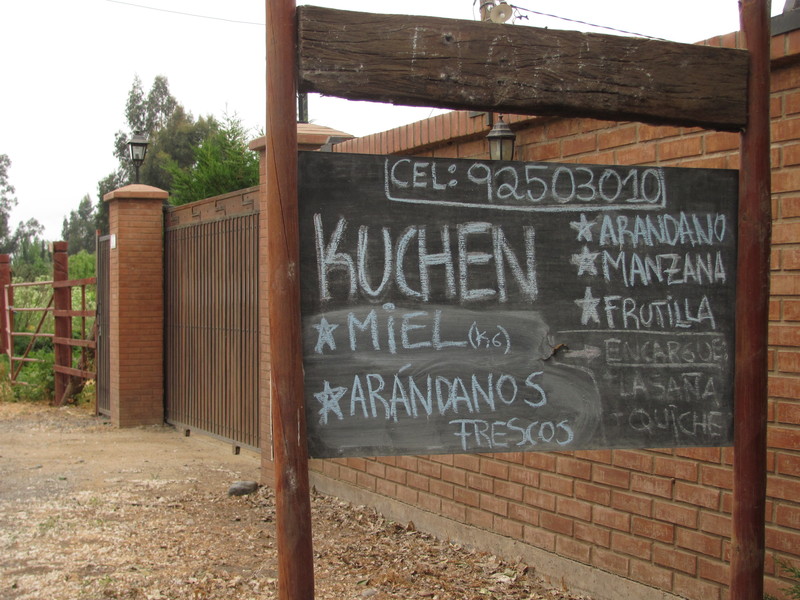 CEL: 92503010
KUCHEN
★ ARANDANO
★ MANZANA
★ FRUTILLA
★ MIEL (K;6)
★ ARÁNDANOS
FRESCOS
ENCARGUE
LASAÑA
QUICHE